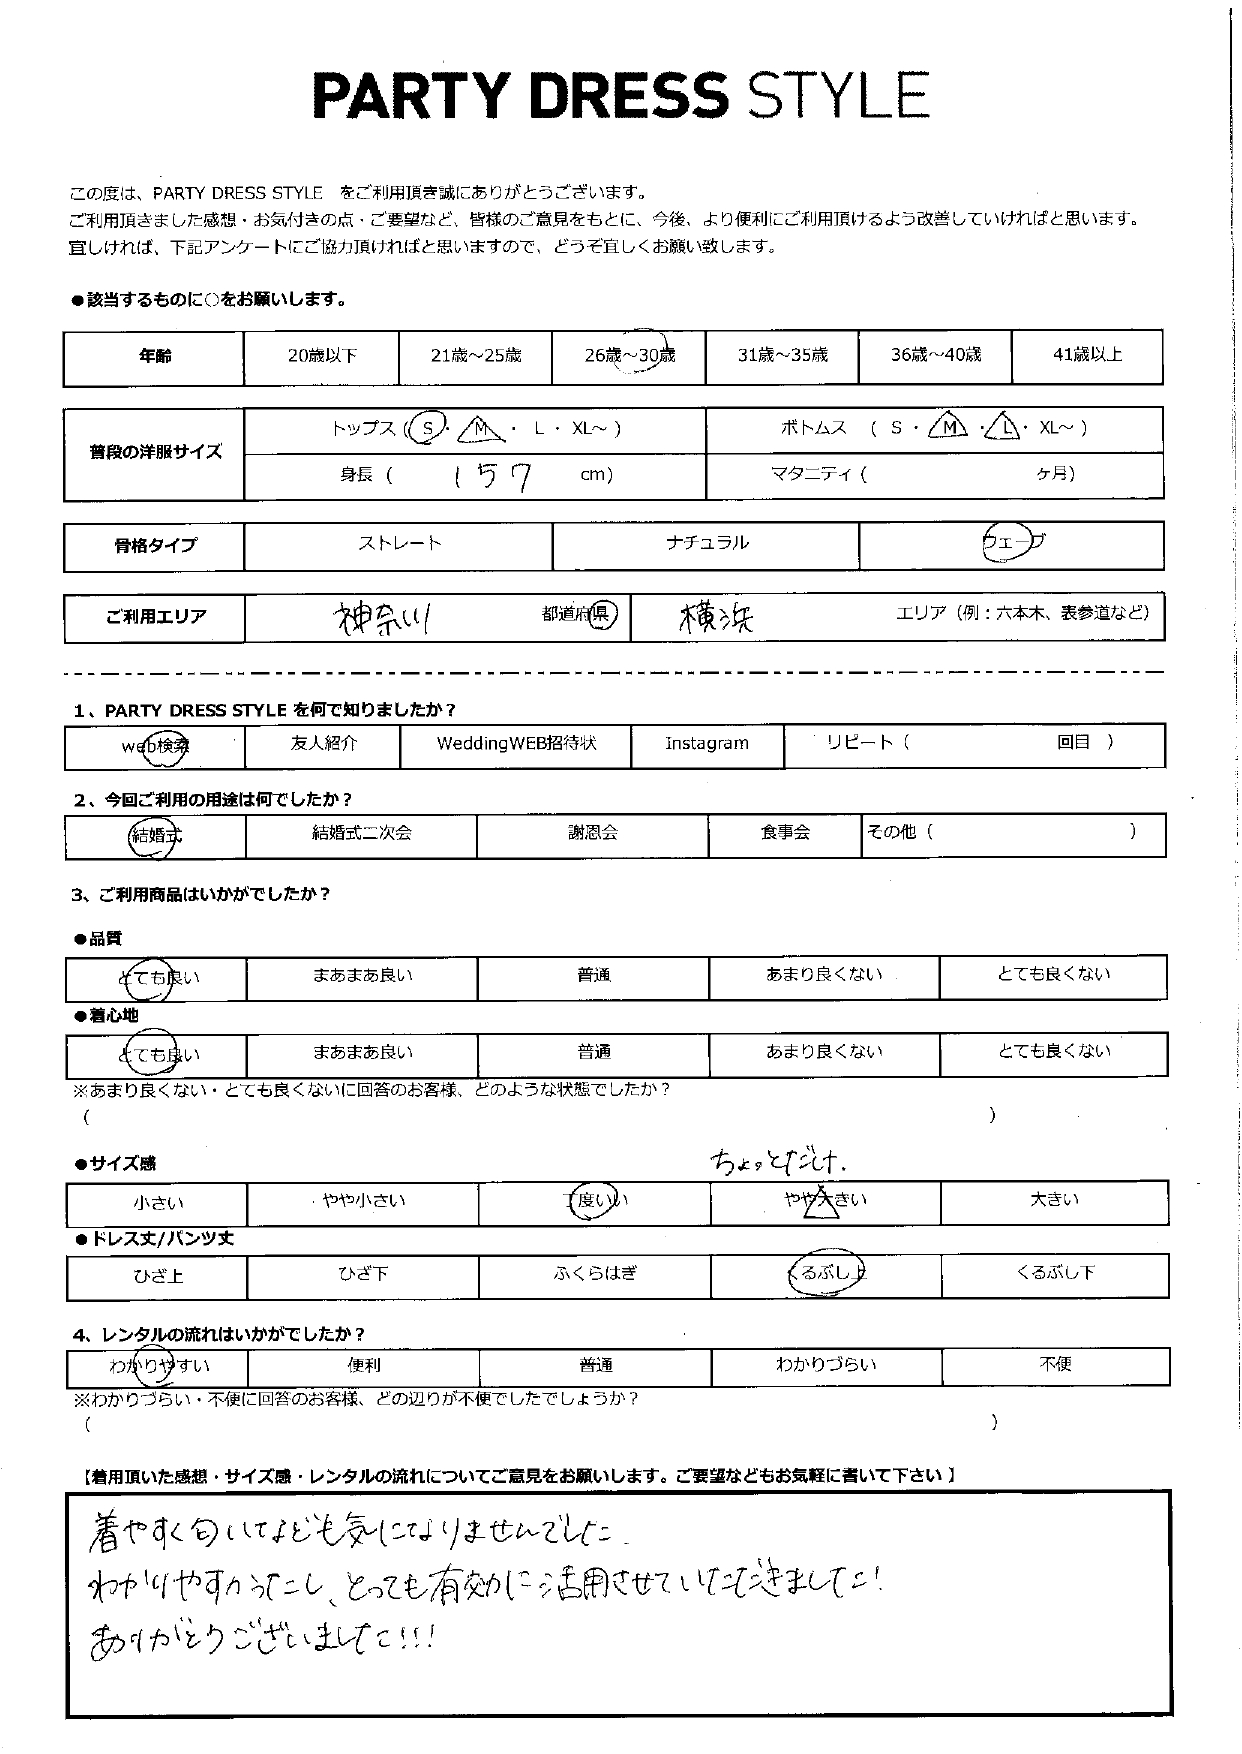 PARTY DRESS STYLE
この度は、PARTY DRESS STYLE をご利用頂き誠にありがとうございます。
ご利用頂きました感想・お気付きの点・ご要望など、皆様のご意見をもとに、今後、より便利にご利用頂けるよう改善していければと思います。
宜しければ、下記アンケートにご協力頂ければと思いますので、どうぞ宜しくお願い致します。
●該当するものに○をお願いします。
年齢 20歳以下 21歳～25歳 26歳～30歳 31歳～35歳 36歳～40歳 41歳以上
普段の洋服サイズ トップス ( S ・ M ・ L ・ XL～ ) ボトムス ( S ・ M ・ L ・ XL～ )
身長 ( 157 cm) マタニティ ( ヶ月)
骨格タイプ ストレート ナチュラル ウェーブ
ご利用エリア 神奈川 都道府県 横浜 エリア（例：六本木、表参道など）
1、PARTY DRESS STYLE を何で知りましたか？
web検索 友人紹介 WeddingWEB招待状 Instagram リピート ( 回目 )
2、今回ご利用の用途は何でしたか？
結婚式 結婚式二次会 謝恩会 食事会 その他 ( )
3、ご利用商品はいかがでしたか？
●品質
とても良い まあまあ良い 普通 あまり良くない とても良くない
●着心地
とても良い まあまあ良い 普通 あまり良くない とても良くない
※あまり良くない・とても良くないに回答のお客様、どのような状態でしたか？
( )
●サイズ感 ちょっとだけ.
小さい やや小さい 丁度いい やや大きい 大きい
●ドレス丈/パンツ丈
ひざ上 ひざ下 ふくらはぎ くるぶし上 くるぶし下
4、レンタルの流れはいかがでしたか？
わかりやすい 便利 普通 わかりづらい 不便
※わかりづらい・不便に回答のお客様、どの辺りが不便でしたでしょうか？
( )
【着用頂いた感想・サイズ感・レンタルの流れについてご意見をお願いします。ご要望などもお気軽に書いて下さい】
着やすく匂いなども気になりませんでした.
わかりやすかったし、とっても有効に活用させていただきました!
ありがとうございました!!!